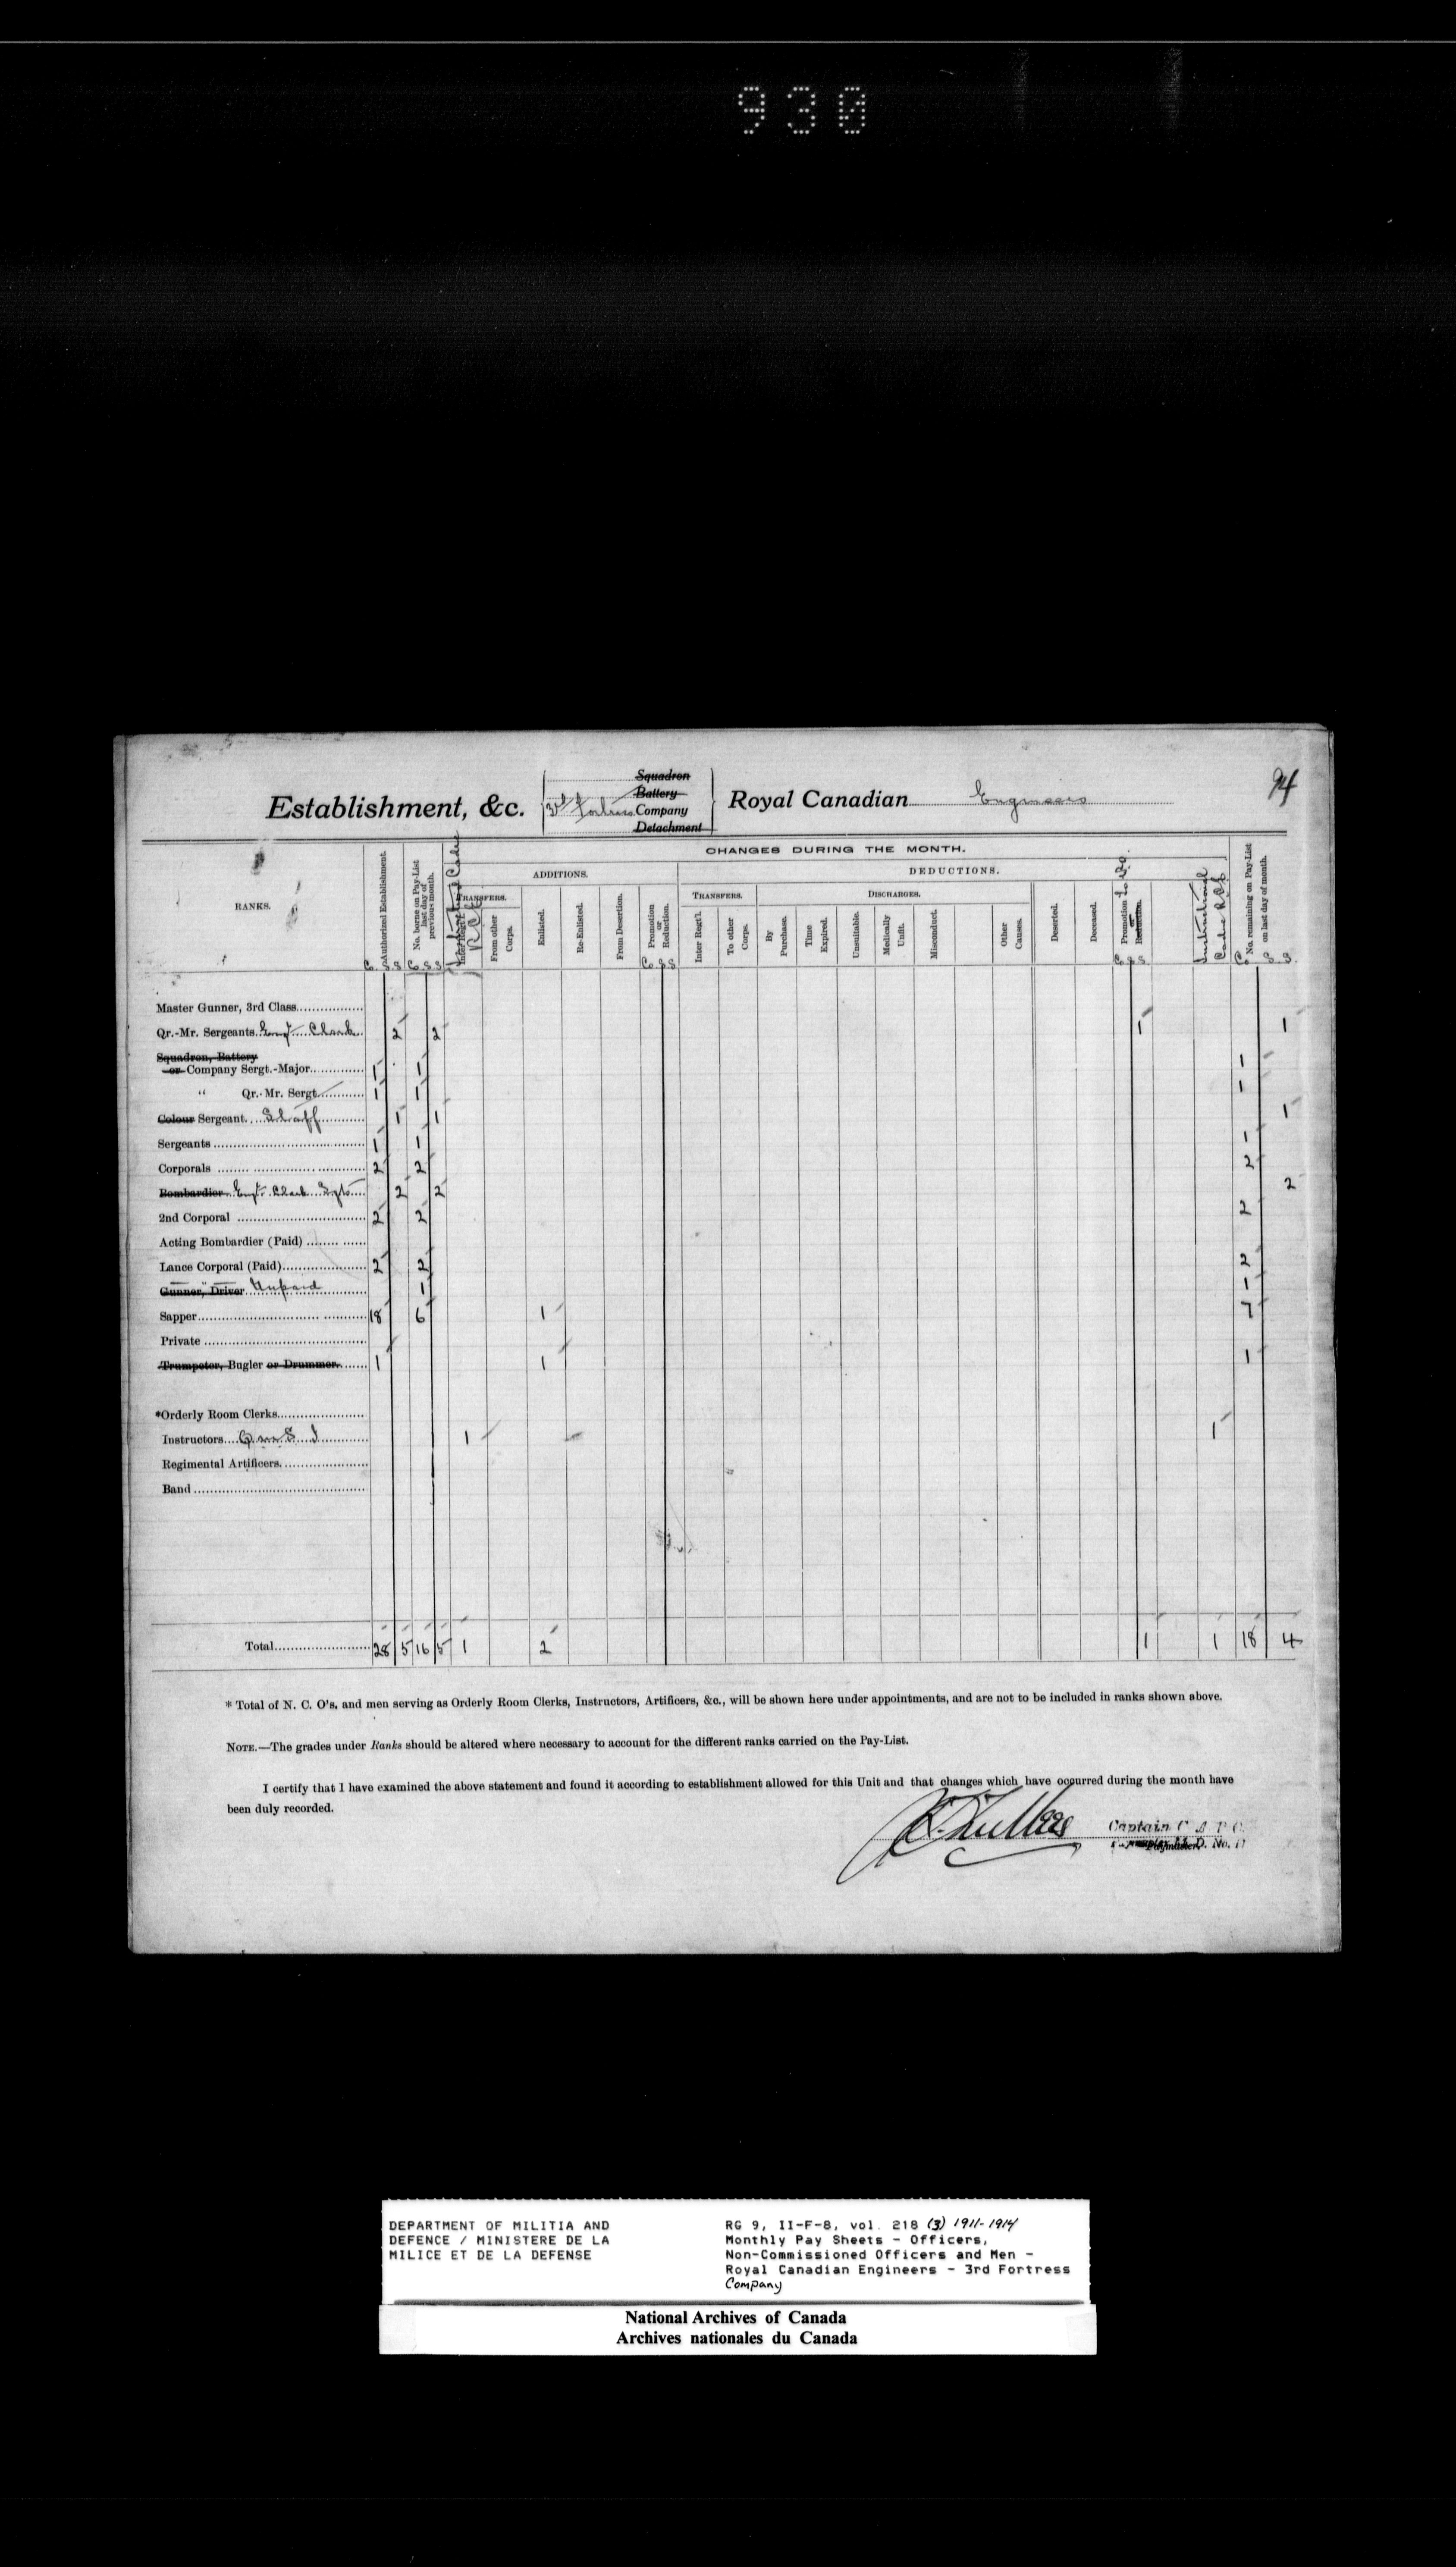 930
94
Establishment, &c.
Squadron
Battery
3rd Fortress Company
Detachment
Royal Canadian Engineers
RANKS.
Authorized Establishment.
No. borne on Pay-List last day of previous month.
CHANGES DURING THE MONTH.
ADDITIONS.
DEDUCTIONS.
TRANSFERS.
TRANSFERS.
DISCHARGES.
From other Corps.
Enlisted.
Re-Enlisted.
From Desertion.
Promotion or Reduction.
Inter Reg't.
To other Corps.
By Purchase.
Time Expired.
Unsuitable.
Medically Unfit.
Misconduct.
Other Causes.
Deserted.
Deceased.
Promotion or Reduction.
Instructional Cadre
No. remaining on Pay-List on last day of month.
Master Gunner, 3rd Class
Qr.-Mr. Sergeants Engr Clerk 2 2 1 1
Squadron, Battery
or Company Sergt.-Major 1 1 1
" Qr.-Mr. Sergt. 1 1 1
Colour Sergeant Staff 1 1 1
Sergeants 1 1 1
Corporals 2 2 2
Bombardier Engr. Clerk Sgts 2 2 2
2nd Corporal 2 2 2
Acting Bombardier (Paid)
Lance Corporal (Paid) 2 2 2
Gunner, Driver Unpaid 1 1
Sapper 18 6 1 7
Private
Trumpeter, Bugler or Drummer. 1 1 1
*Orderly Room Clerks
Instructors Q M S I 1 1
Regimental Artificers
Band
Total 28 5 16 5 1 2 1 1 18 4
* Total of N. C. O's. and men serving as Orderly Room Clerks, Instructors, Artificers, &c., will be shown here under appointments, and are not to be included in ranks shown above.
NOTE.—The grades under Ranks should be altered where necessary to account for the different ranks carried on the Pay-List.
I certify that I have examined the above statement and found it according to establishment allowed for this Unit and that changes which have occurred during the month have
been duly recorded.
Captain C. A. P. C.
DEPARTMENT OF MILITIA AND
DEFENCE / MINISTERE DE LA
MILICE ET DE LA DEFENSE
RG 9, II-F-8, vol. 218 (3) 1911-1914
Monthly Pay Sheets - Officers,
Non-Commissioned Officers and Men -
Royal Canadian Engineers - 3rd Fortress
Company
National Archives of Canada
Archives nationales du Canada